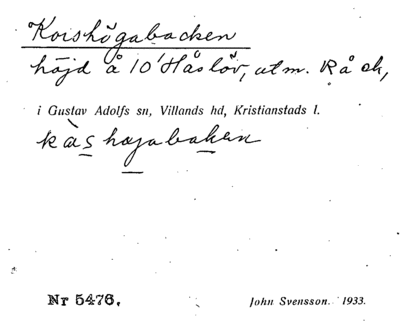 Korshögabacken
höjd å 10 Håslöv, ut m. Rå ok,
i Gustav Adolfs sn, Villands hd, Kristianstads l.
kàshøjabaken
Nr 5476.
John Svensson. 1933.